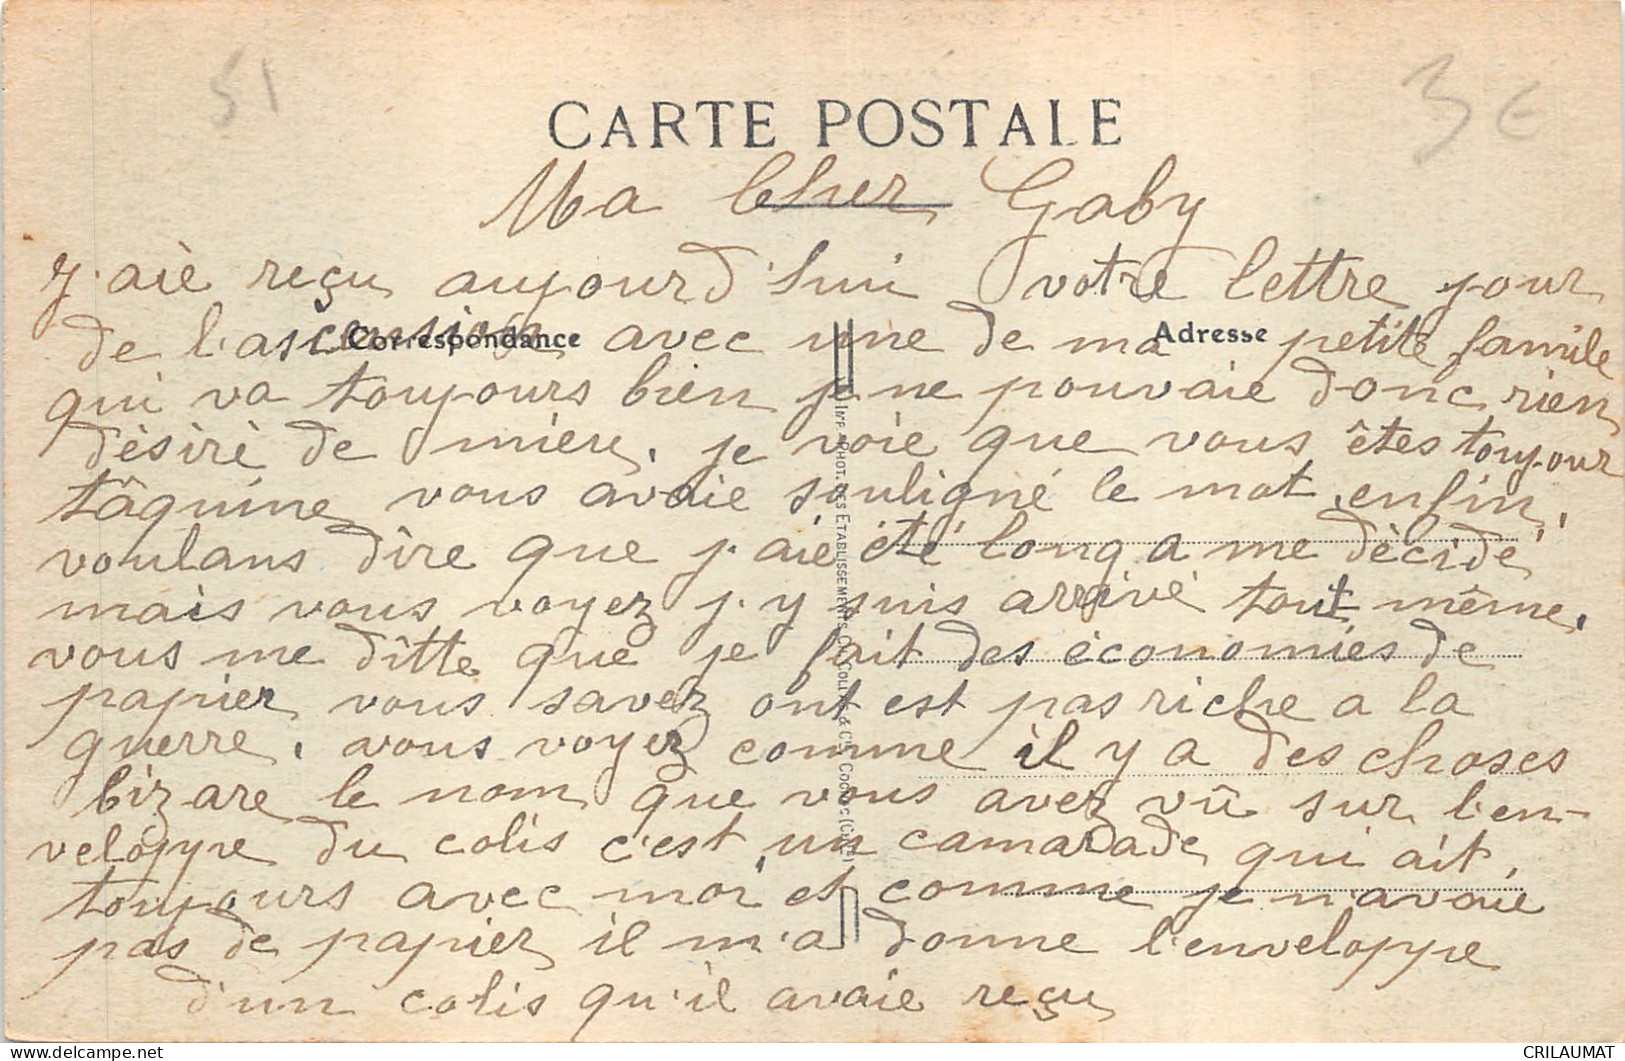 51
3 €
CARTE POSTALE
Ma Cher Gaby
J. aiè reçu aujourd'hui votre lettre jour
de l'ascension avec une de ma petite famile
Correspondance
Adresse
qui va toujours bien je ne pouvaie donc rien
dèsirè de mieux. je voie que vous êtes toujour
tâquine vous avaie souligné le mot enfin,
voulans dîre que j. aie été long a me dècidé
mais vous voyez j. y suis arrivé tout même.
vous me dîtte que je fait des économies de
papier vous savez ont est pas riche a la
guerre. vous voyez comme il y a des choses
bizare le nom que vous avez vû sur l'en-
veloppe du colis c'est un camarade qui ait
toujours avec moi et comme je n'avaie
pas de papier il m'a donne l'enveloppe
d'un colis qu'il avaie reçu
IMP. PHOT. DES ETABLISSEMENTS & CIE COGNAC
CRILAUMAT